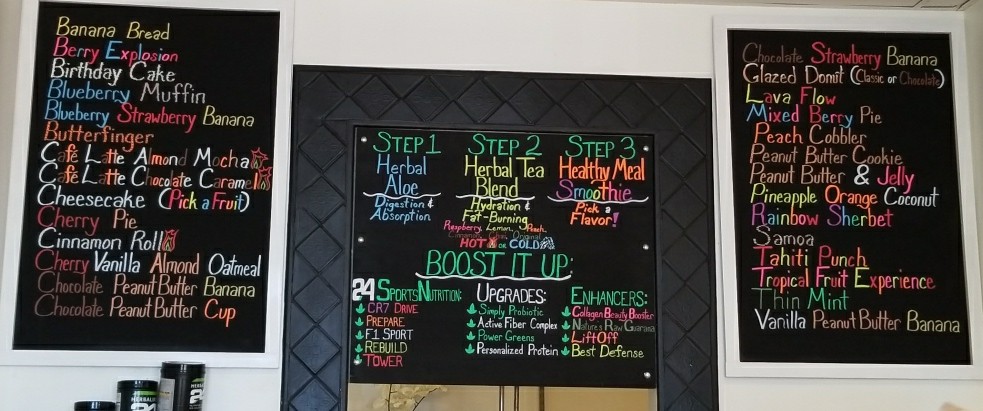 Banana Bread
Berry Explosion
Birthday Cake
Blueberry Muffin
Blueberry Strawberry Banana
Butterfinger
Café Latte Almond Mocha
Café Latte Chocolate Caramel
Cheesecake (Pick a Fruit)
Cherry Pie
Cinnamon Roll
Cherry Vanilla Almond Oatmeal
Chocolate Peanut Butter Banana
Chocolate Peanut Butter Cup
STEP 1
Herbal
Aloe
Digestion &
Absorption
STEP 2
Herbal Tea
Blend
Hydration &
Fat-Burning
Raspberry, Lemon, Peach,
Cinnamon, Chai, Original
HOT or COLD
STEP 3
Healthy Meal
Smoothie
Pick a
Flavor!
BOOST IT UP:
24 SPORTS NUTRITION:
CR7 DRIVE
PREPARE
F1 SPORT
REBUILD
TOWER
UPGRADES:
Simply Probiotic
Active Fiber Complex
Power Greens
Personalized Protein
ENHANCERS:
Collagen Beauty Booster
Nature's Raw Guarana
LiftOff
Best Defense
Chocolate Strawberry Banana
Glazed Donut (Classic or Chocolate)
Lava Flow
Mixed Berry Pie
Peach Cobbler
Peanut Butter Cookie
Peanut Butter & Jelly
Pineapple Orange Coconut
Rainbow Sherbet
Samoa
Tahiti Punch
Tropical Fruit Experience
Thin Mint
Vanilla Peanut Butter Banana
24